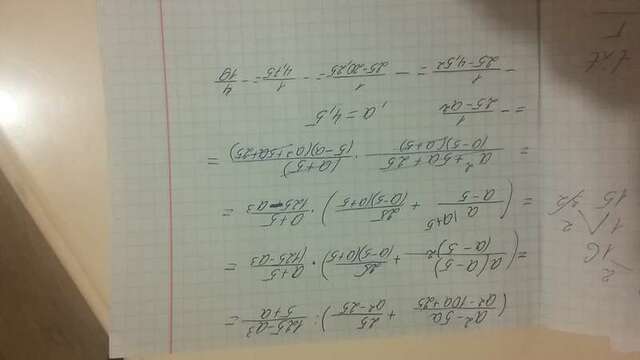 ( (a² - 5a)/(a² - 10a + 25) + 25/(a² - 25) ) : (125 - a³)/(5 + a) =
= ( a(a - 5)/(a - 5)² + 25/((a - 5)(a + 5)) ) · (a + 5)/(125 - a³ =
= ( a \a+5/(a - 5) + 25/((a - 5)(a + 5)) ) · (a + 5)/(125 - a³) =
= (a² + 5a + 25)/((a - 5)(a + 5)) · (a + 5)/((5 - a)(a² + 5a + 25)) =
= - 1/(25 - a²) , a = 4,5
- 1/(25 - 4,5²) = - 1/(25 - 20,25) = - 1/4,75 = - 4/19
2
16
1 2
15